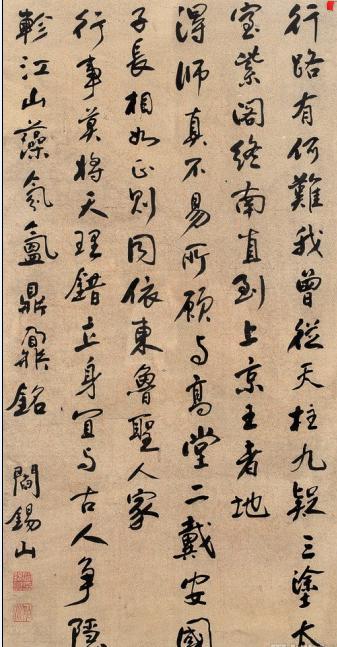 行路有何難我曾從天柱九疑三塗太
室紫閣終南直到上京王者地
得師真不易所願與高堂二戴安國
子長相如正則同依東魯聖人家
行事莫將天理錯立身宜與古人爭隱
軫江山藻氛氳鼎鼐銘
閻錫山